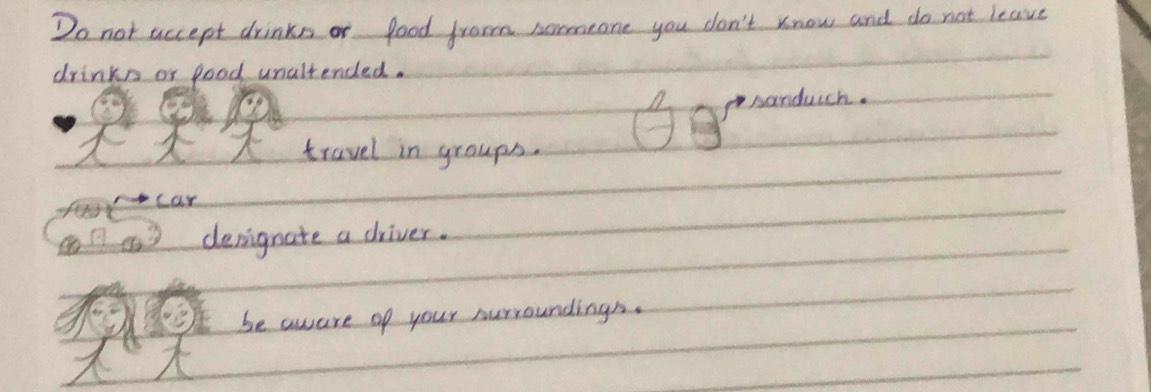 Do not accept drinks or food from someone you don't know and do not leave
drinks or food unattended.
sandwich.
travel in groups.
car
designate a driver.
be aware of your surroundings.